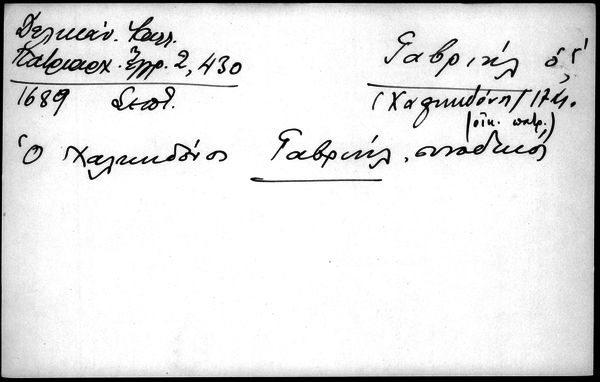 Δελικάν. Καλλ.
Πατριαρχ. Ἔγγρ. 2, 430
1689 Σεπτ.
Γαβριήλ ὁ Γ'
(Χαλκηδόνη) 17 αἰ.
(οἰκ. πατρ.)
Ὁ Χαλκηδόνος Γαβριήλ, συνοδικός